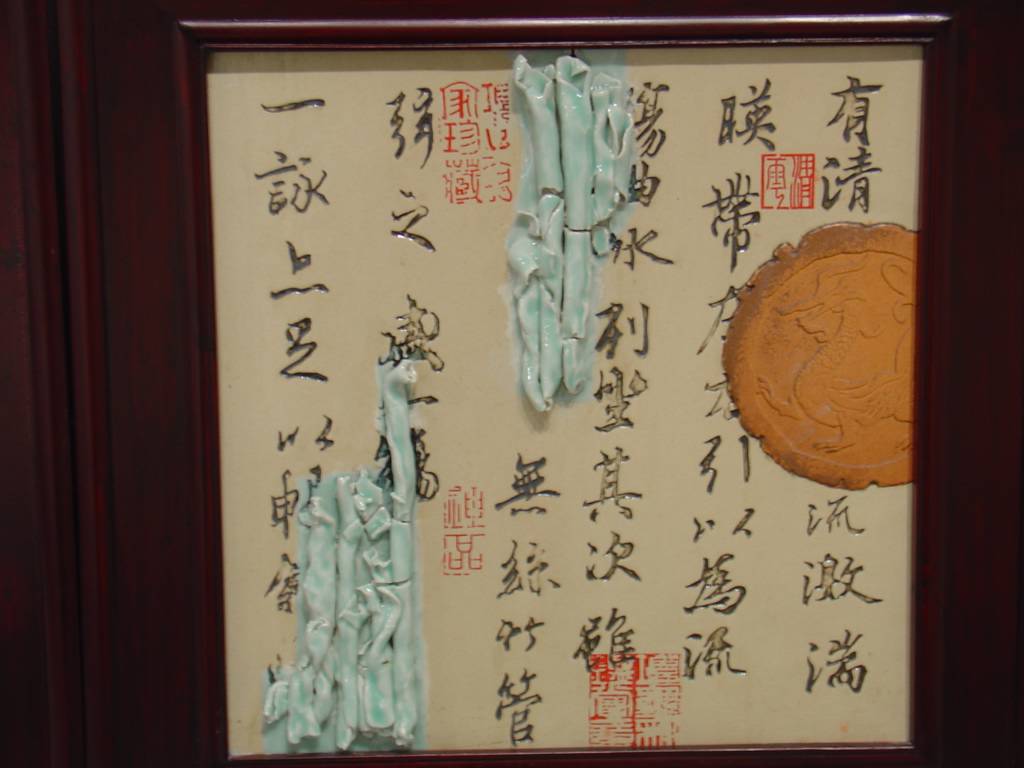 有清流激湍
暎帶左右引以為流
觴曲水列坐其次雖
無絲竹管
弦之盛一觴
一詠亦足以暢
家珍藏
神品